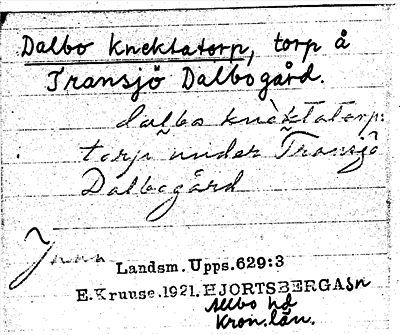 Dalbo knektatorp, torp å
Transjö Dalbogård.
dalbo knèktatorp:
torp under Transjö
Dalbogård
Landsm. Upps. 629:3
E. Kruuse. 1921. HJORTSBERGA sn
Allbo hd
Kron. län.